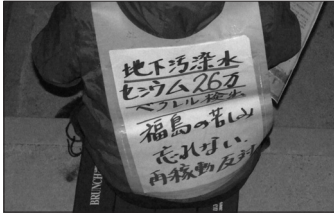 地下汚染水
セシウム26万
ベクレル検出
福島の苦しみ
忘れない
再稼動反対
BRUNCH